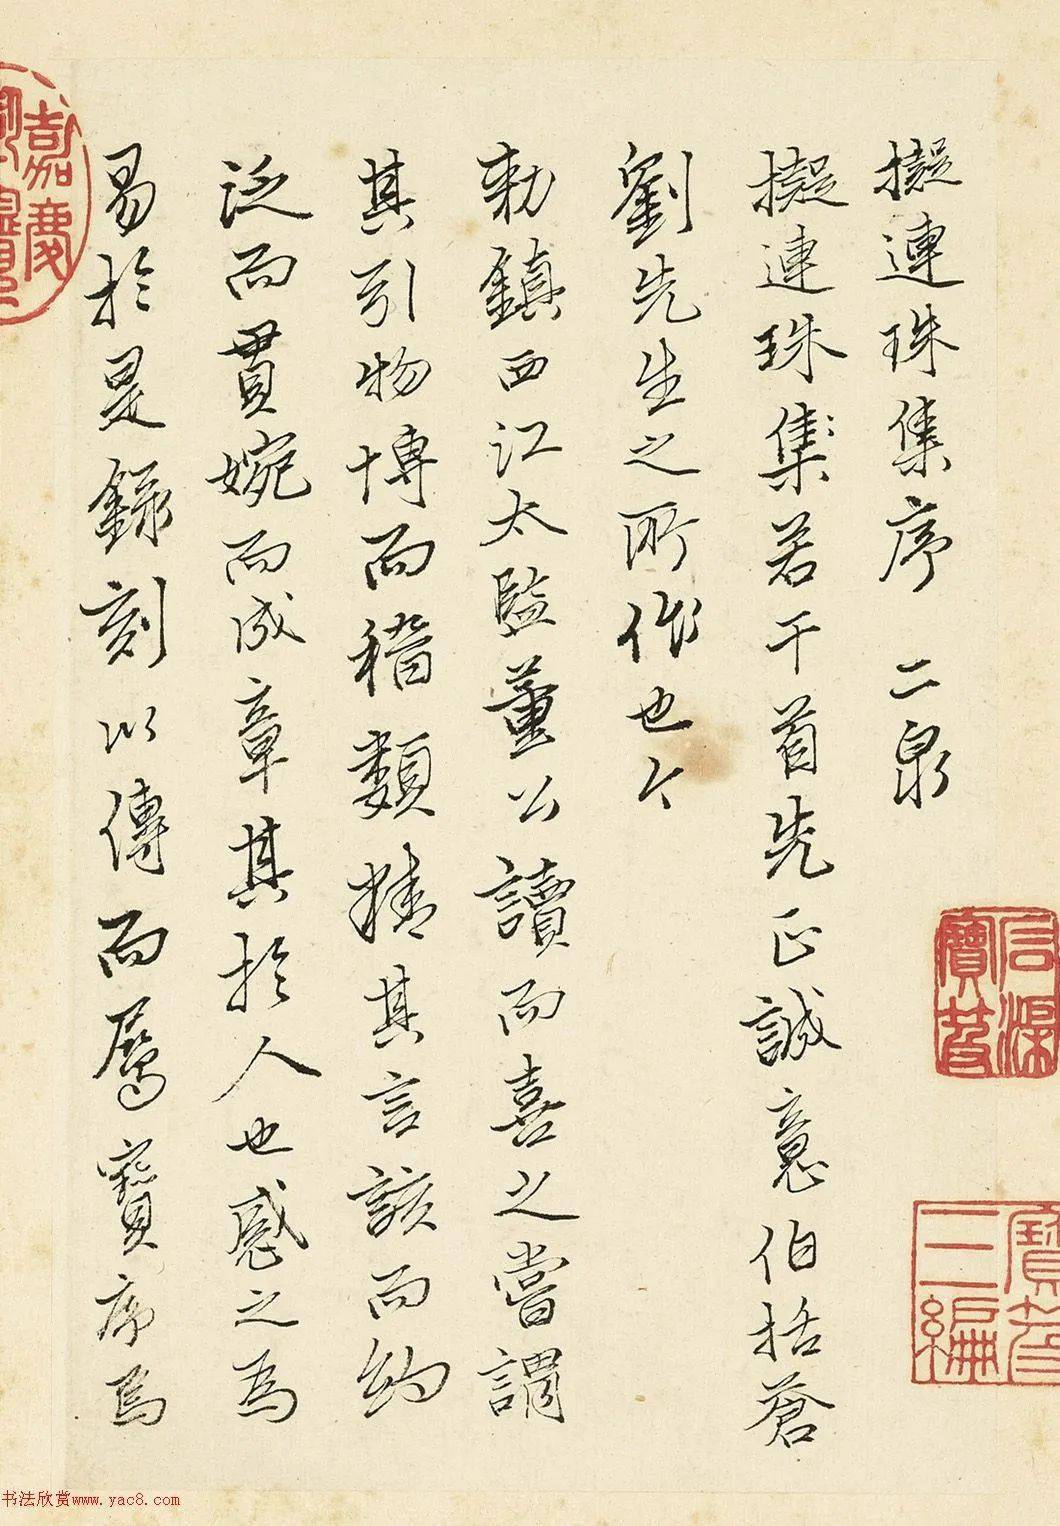 擬連珠集序 二泉
擬連珠集若干首先正誠意伯括蒼
劉先生之所作也今
勑鎮西江太監董公讀而喜之嘗謂
其引物博而稽類精其言該而約
泛而貫婉而成章其於人也感之為
易於是錄刻以傳而屬寶序焉
嘉慶
寶笈
三編
书法欣赏www.yac8.com